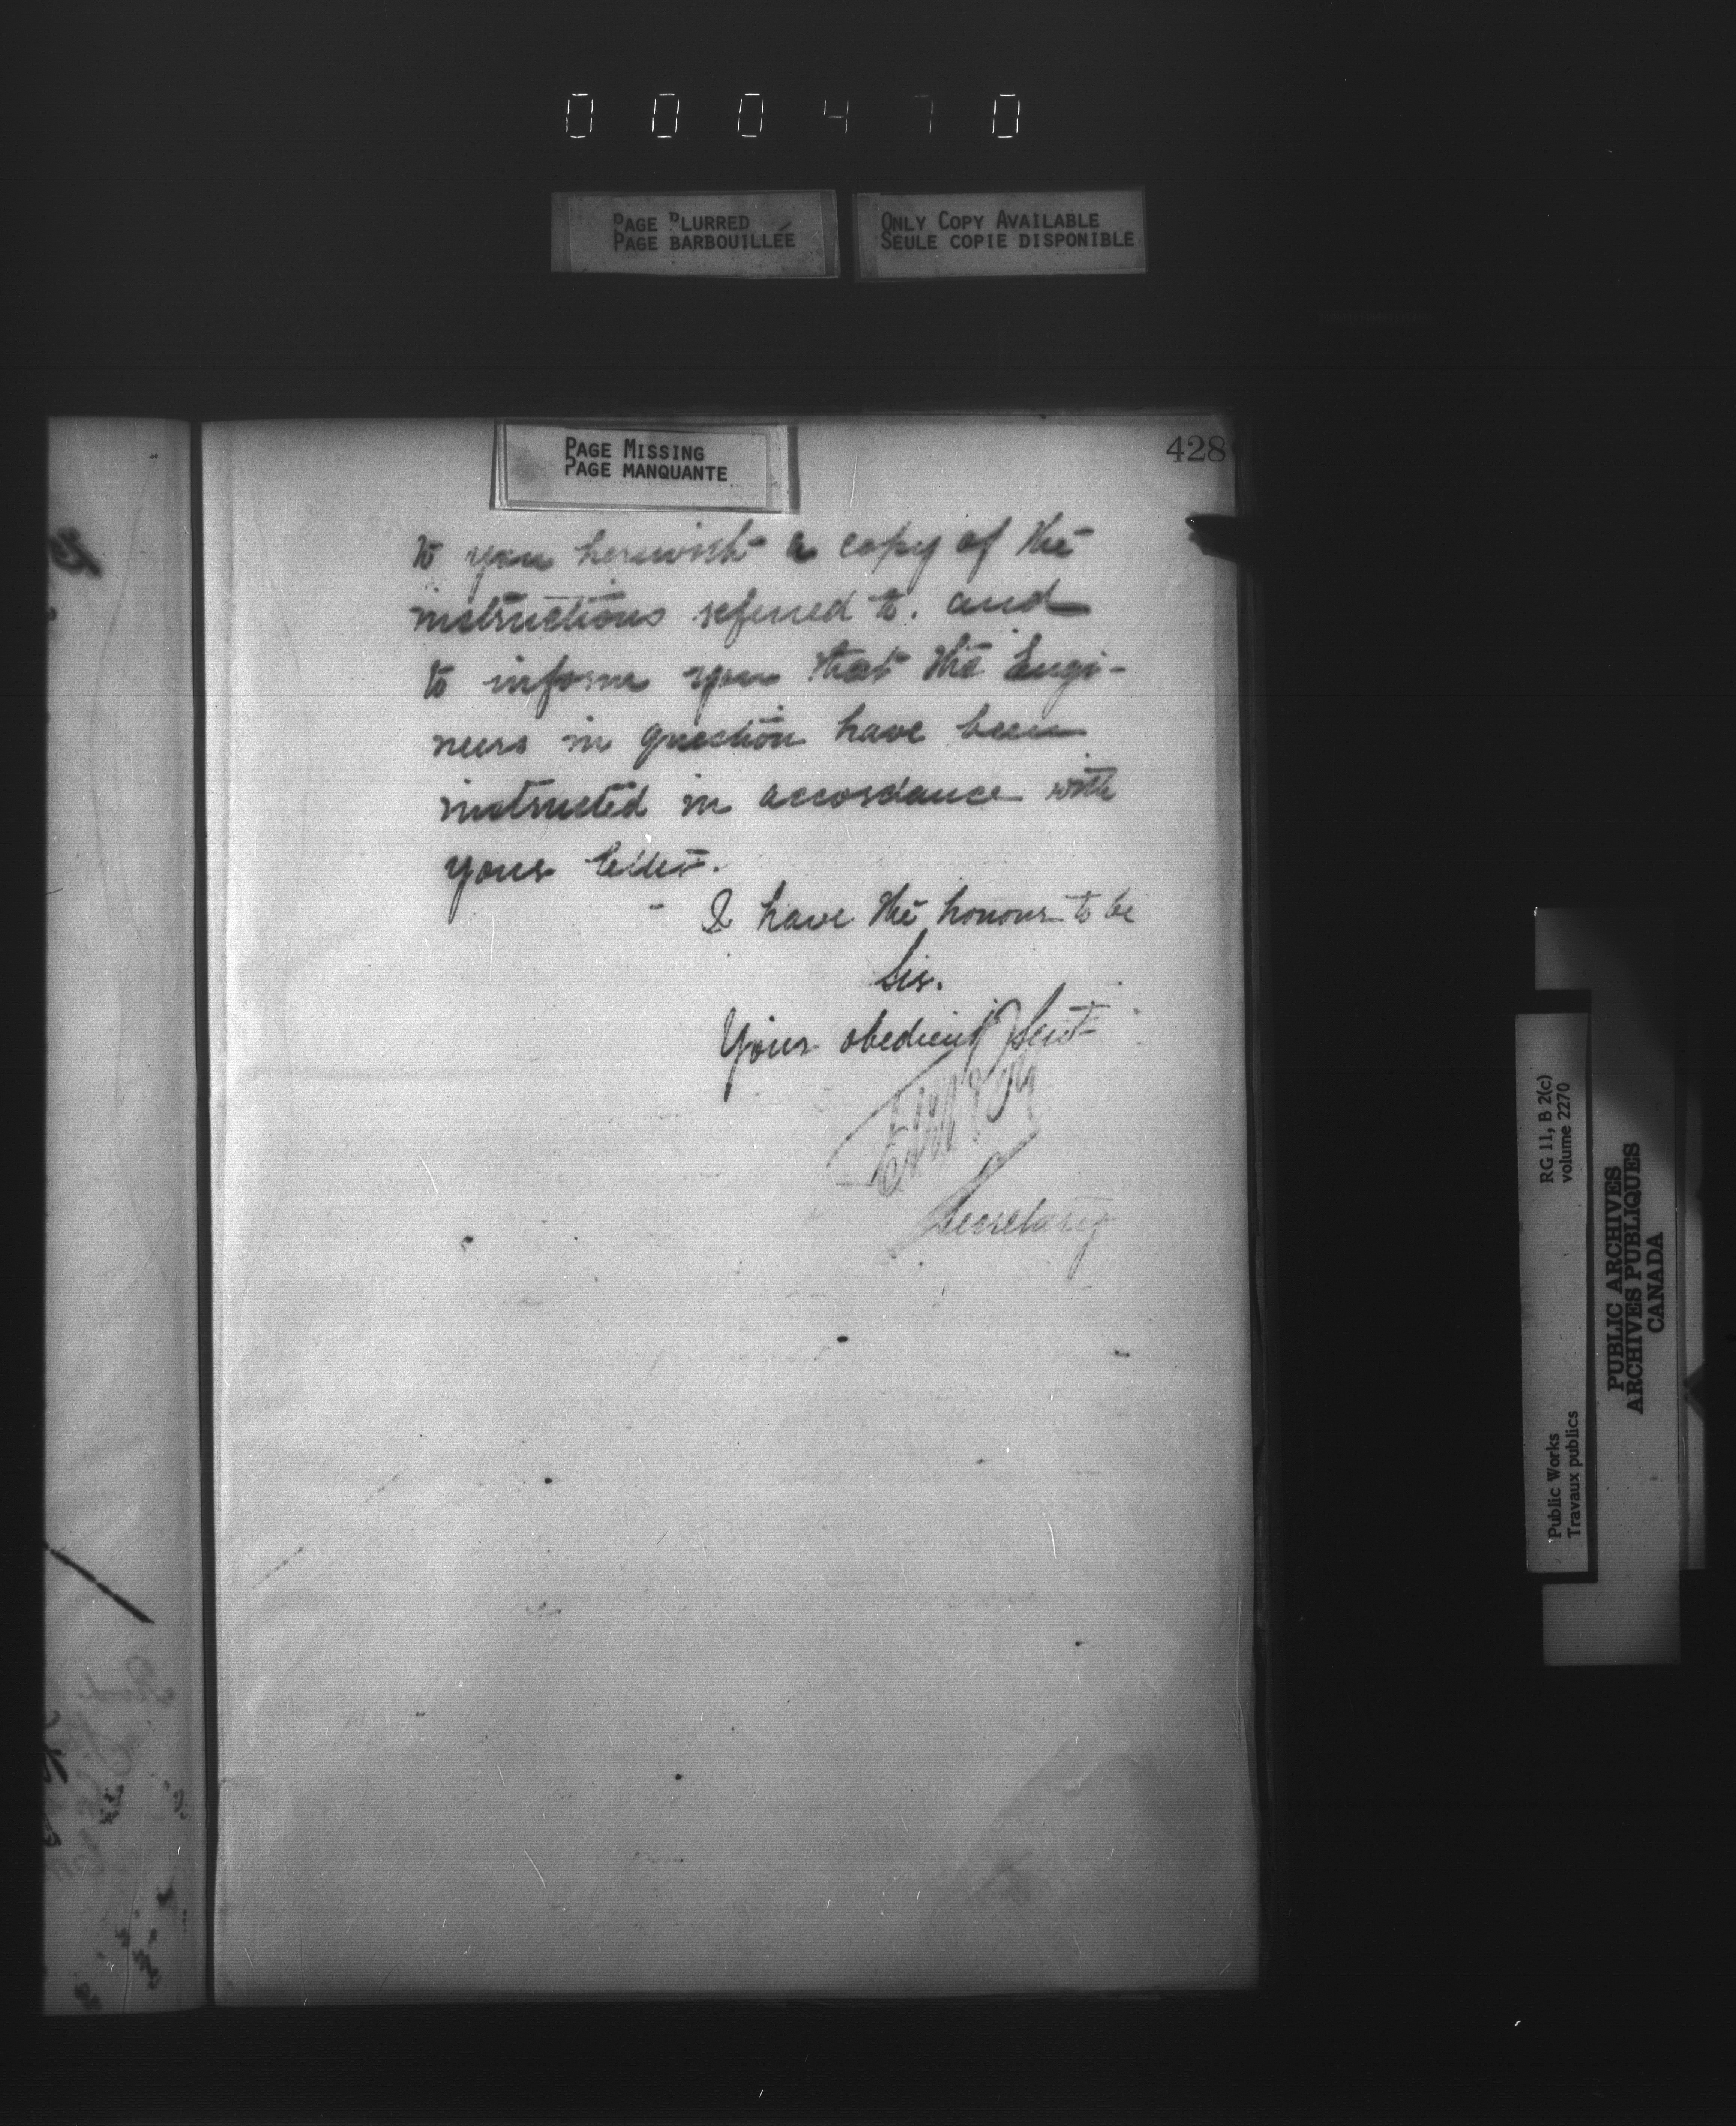 000470
PAGE BLURRED
PAGE BARBOUILLÉE
ONLY COPY AVAILABLE
SEULE COPIE DISPONIBLE
PAGE MISSING
PAGE MANQUANTE
428
to you herewith a copy of the
instructions referred to. and
to inform you that the Engi-
neers in question have been
instructed in accordance with
your letter.
I have the honour to be
Sir.
Your obedient Servt
Secretary
RG 11, B 2(c)
volume 2270
Public Works
Travaux publics
PUBLIC ARCHIVES
ARCHIVES PUBLIQUES
CANADA